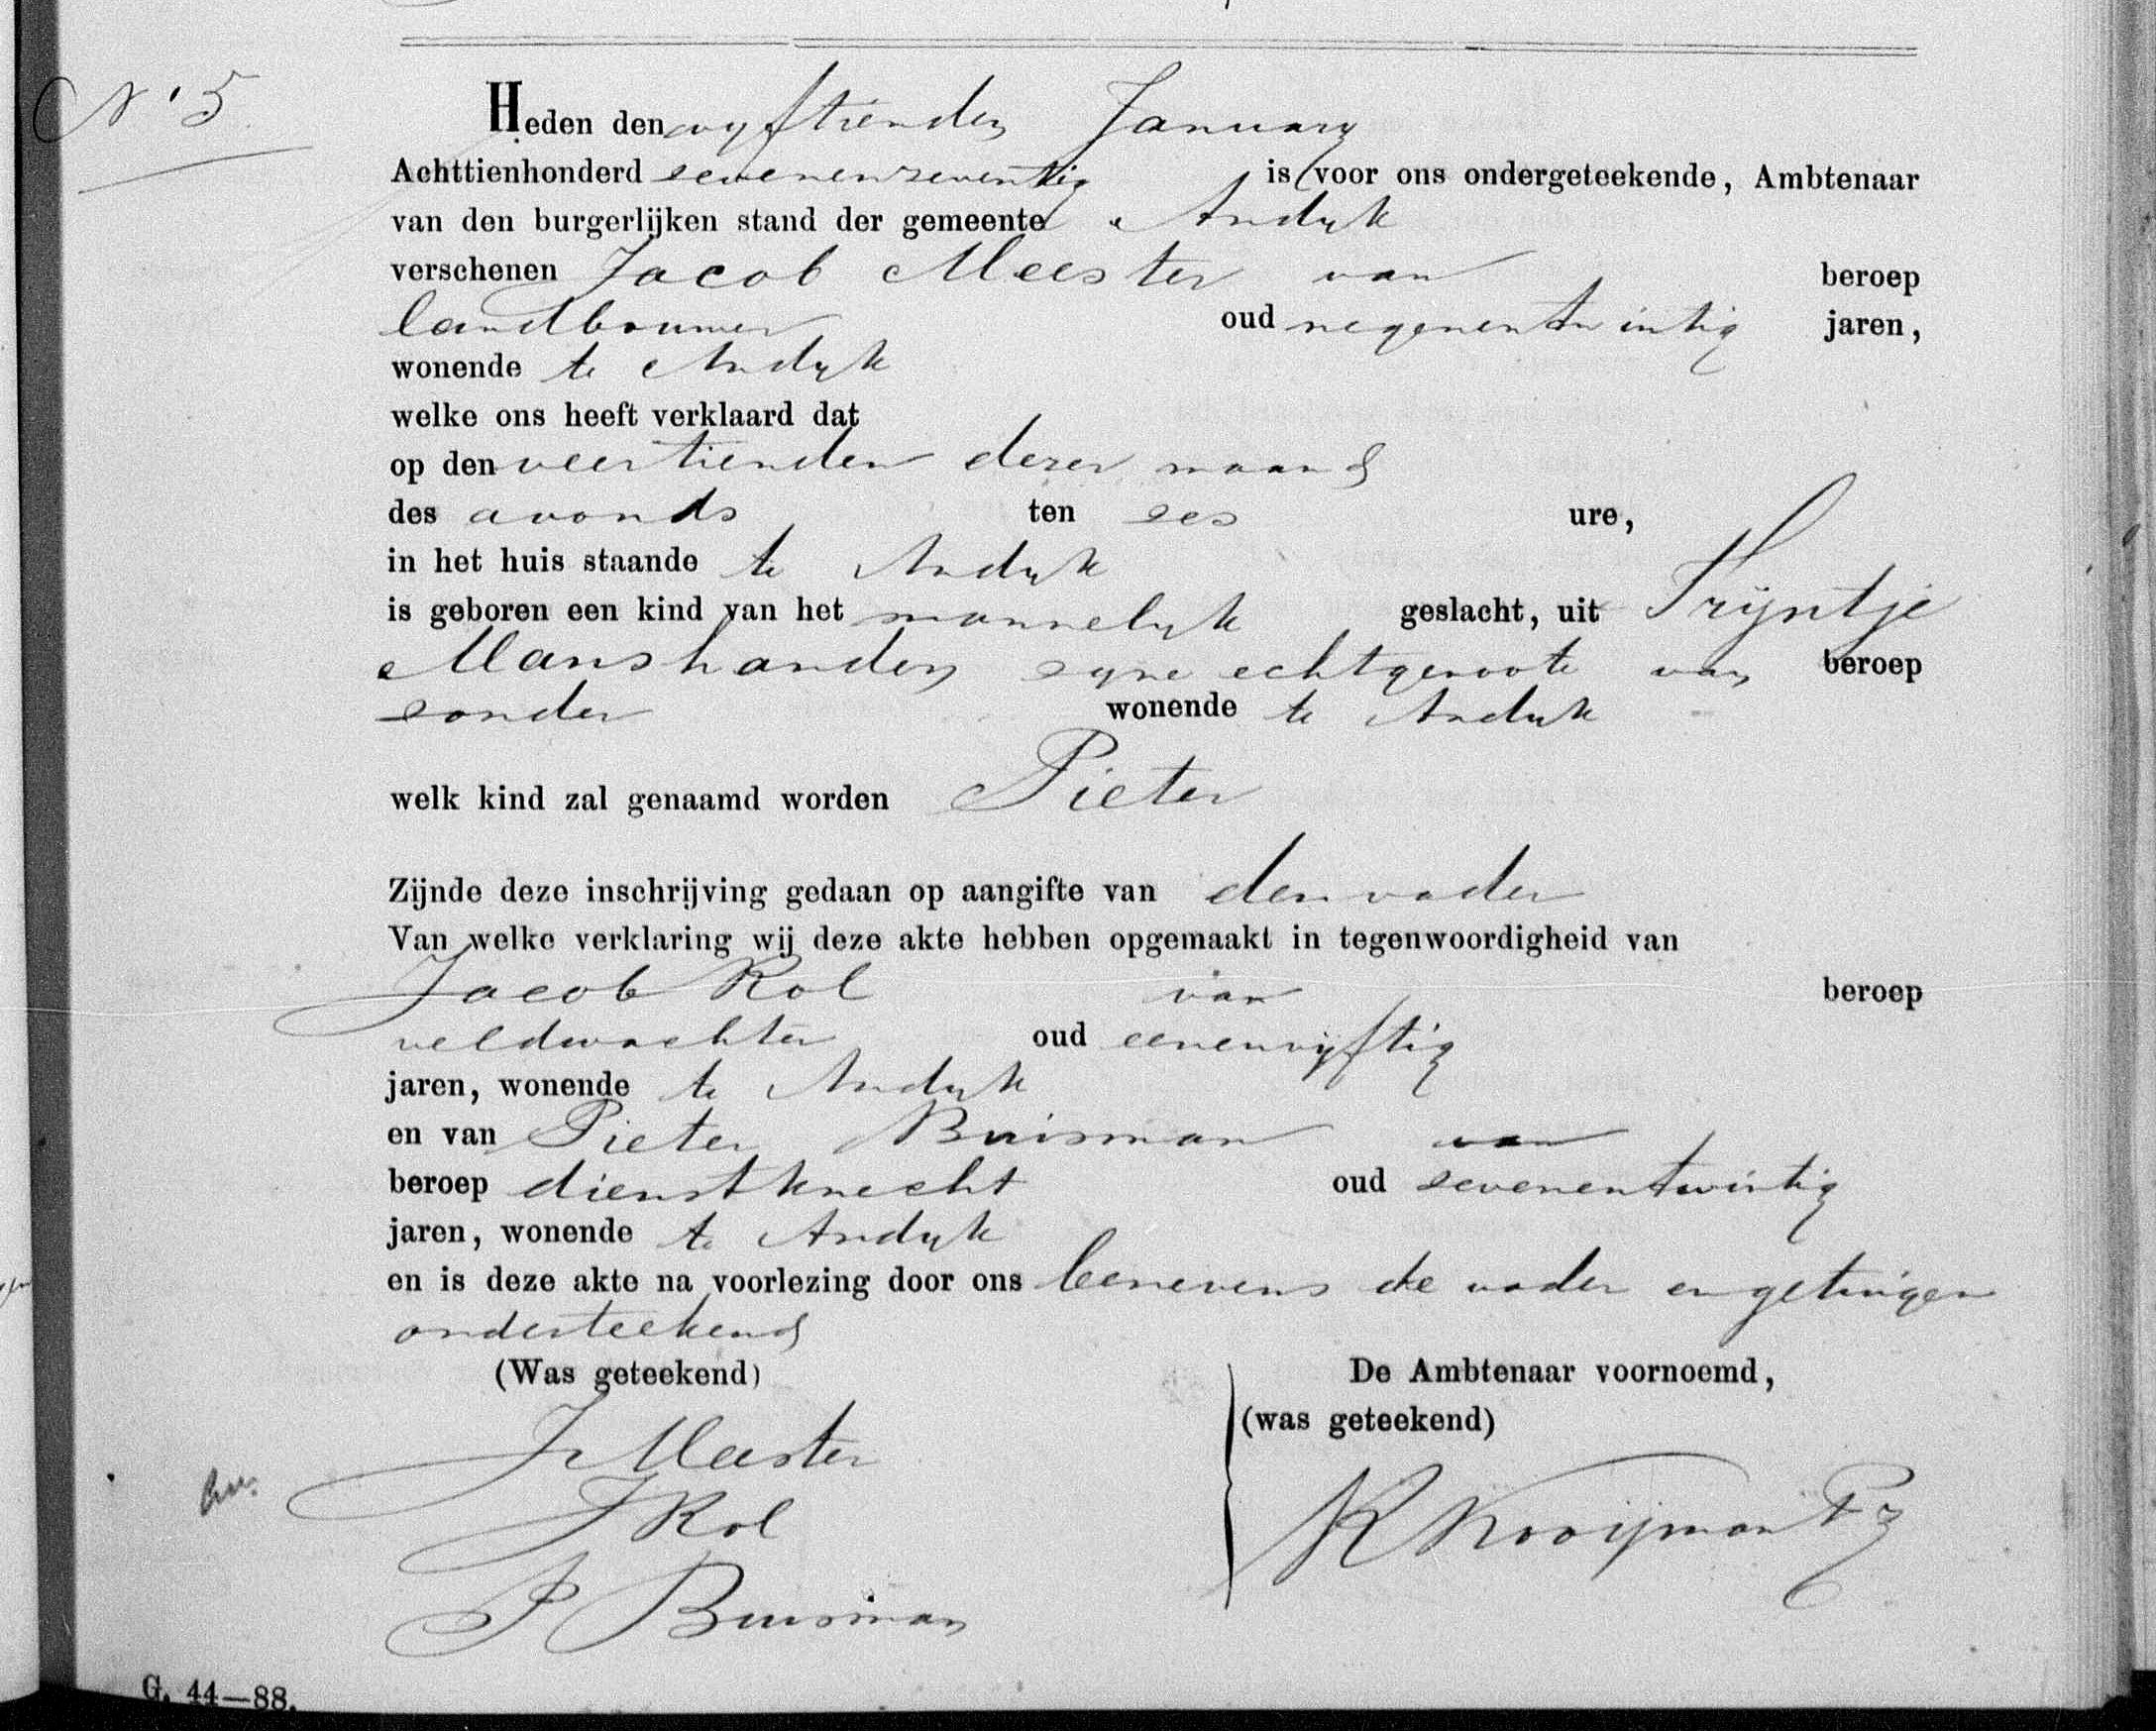 No 5
Heden den vyftienden January
Achttienhonderd sevenenseventig is voor ons ondergeteekende, Ambtenaar
van den burgerlijken stand der gemeente Andyk
verschenen Jacob Meester van beroep
landbouwer oud negenentwintig jaren,
wonende te Andyk
welke ons heeft verklaard dat
op den veertienden dezer maand
des avonds ten ses ure,
in het huis staande te Andyk
is geboren een kind van het mannelyk geslacht, uit Trijntje
Manshanden syne echtgenoote van beroep
sonder wonende te Andyk
welk kind zal genaamd worden Pieter
Zijnde deze inschrijving gedaan op aangifte van den vader
Van welke verklaring wij deze akte hebben opgemaakt in tegenwoordigheid van
Jacob Kol van beroep
veldwachter oud eenenvyftig
jaren, wonende te Andyk
en van Pieter Buisman van
beroep dienstknecht oud sevenentwintig
jaren, wonende te Andyk
en is deze akte na voorlezing door ons benevens de vader en getuigen
onderteekend
(Was geteekend) De Ambtenaar voornoemd,
(was geteekend)
J Meester
J Kol
K Kooijman Pz
P Buisman
G. 44—88.